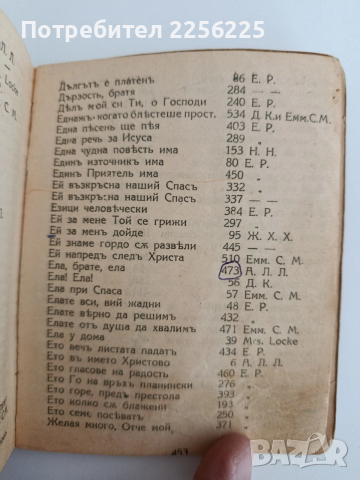 Дългътъ е платенъ 86 Е. Р.
Дързость, братя 284 — —
Дѣлъ мой си Ти, о Господи 240 Е. Р.
Еднажъ, когато блѣстеше прост. 534 Д. К. и Емм. С. М.
Една пѣсень ще пѣя 403 Е. Р.
Една речь за Исуса 289 „
Една чудна повѣсть има 153 Н. Н.
Единъ източникъ има 80 Е. Р.
Единъ Приятель има 450 „
Ей възкръсна нашиятъ Спасъ 332 „
Ей възкръсна нашиятъ Спасъ 337 — —
Езици человѣчески 384 Е. Р.
Ей за мене Той се грижи 297 „
Ей за менъ дойде 95 Ж. Х. Х.
Ей знаме гордо сѫ развѣли 445 — —
Ей напредъ следъ Христа 510 Емм. С. М.
Ела, брате, ела 473 А. Л. Л.
Ела! Ела! 56 Д. К.
Ела при Спаса 57 Емм. С. М.
Елате вси, вий жадни 48 Е. Р.
Елате вѣрно да решимъ 432 „
Елате отъ душа да хвалимъ 471 Емм. С. М.
Ела у дома 39 Mrs. Locke
Ето вечъ листата падатъ 434 Е. Р.
Ето въ името Христово 6 А. Л. Л.
Ето гласове на радость 460 Е. Р.
Ето Го на връхъ планински 276 „
Ето горе, предъ престола 393 „
Ето колко сѫ блажени 193 „
Ето семе посѣватъ 250 „
Желая много, Отче мой, 371 „
457
Л. Л
Locke
С. М.
Купувач 2256225
bazar
БГ